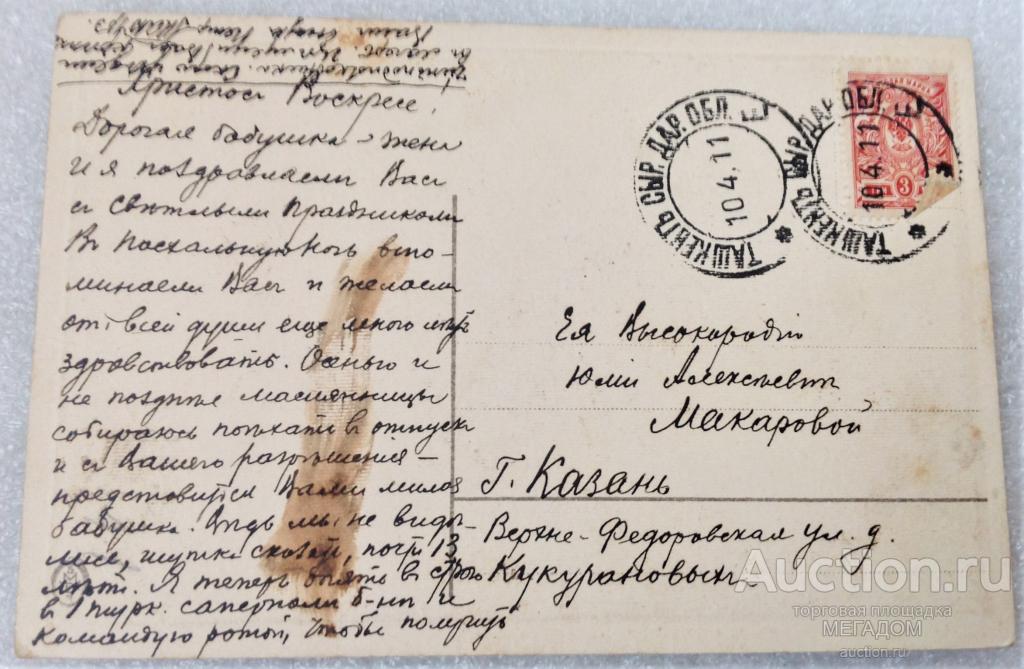 Христосъ Воскресе!
Дорогая бабушка – жена
и я поздравляемъ Васъ
съ Свѣтлымъ Праздникомъ
Въ Пасхальную ночь вспо-
минаемъ Васъ и желаемъ
отъ всей души еще много лѣтъ
здравствовать. Осенью и
не позднѣе масляницы
собираюсь поѣхать въ отпускъ
и съ Вашего разрѣшенія –
представиться Вамъ милая
бабушка. Вѣдь мы не видѣ-
лись, шутка сказать, почти 13
лѣтъ. Я теперь опять въ строю
въ 1 турк. саперномъ б-нѣ и
командую ротой, чтобы получить
Ея Высокородію
Юліи Алексѣевнѣ
Макаровой
Г. Казань
Верхне-Федоровская ул. д.
Кукурановыхъ
ТАШКЕНТЪ СЫР. ДАР. ОБЛ.
10.4.11
ТАШКЕНТЪ СЫР. ДАР. ОБЛ.
10.4.11
3
Auction.ru
торговая площадка
МЕГАДОМ
auction.ru